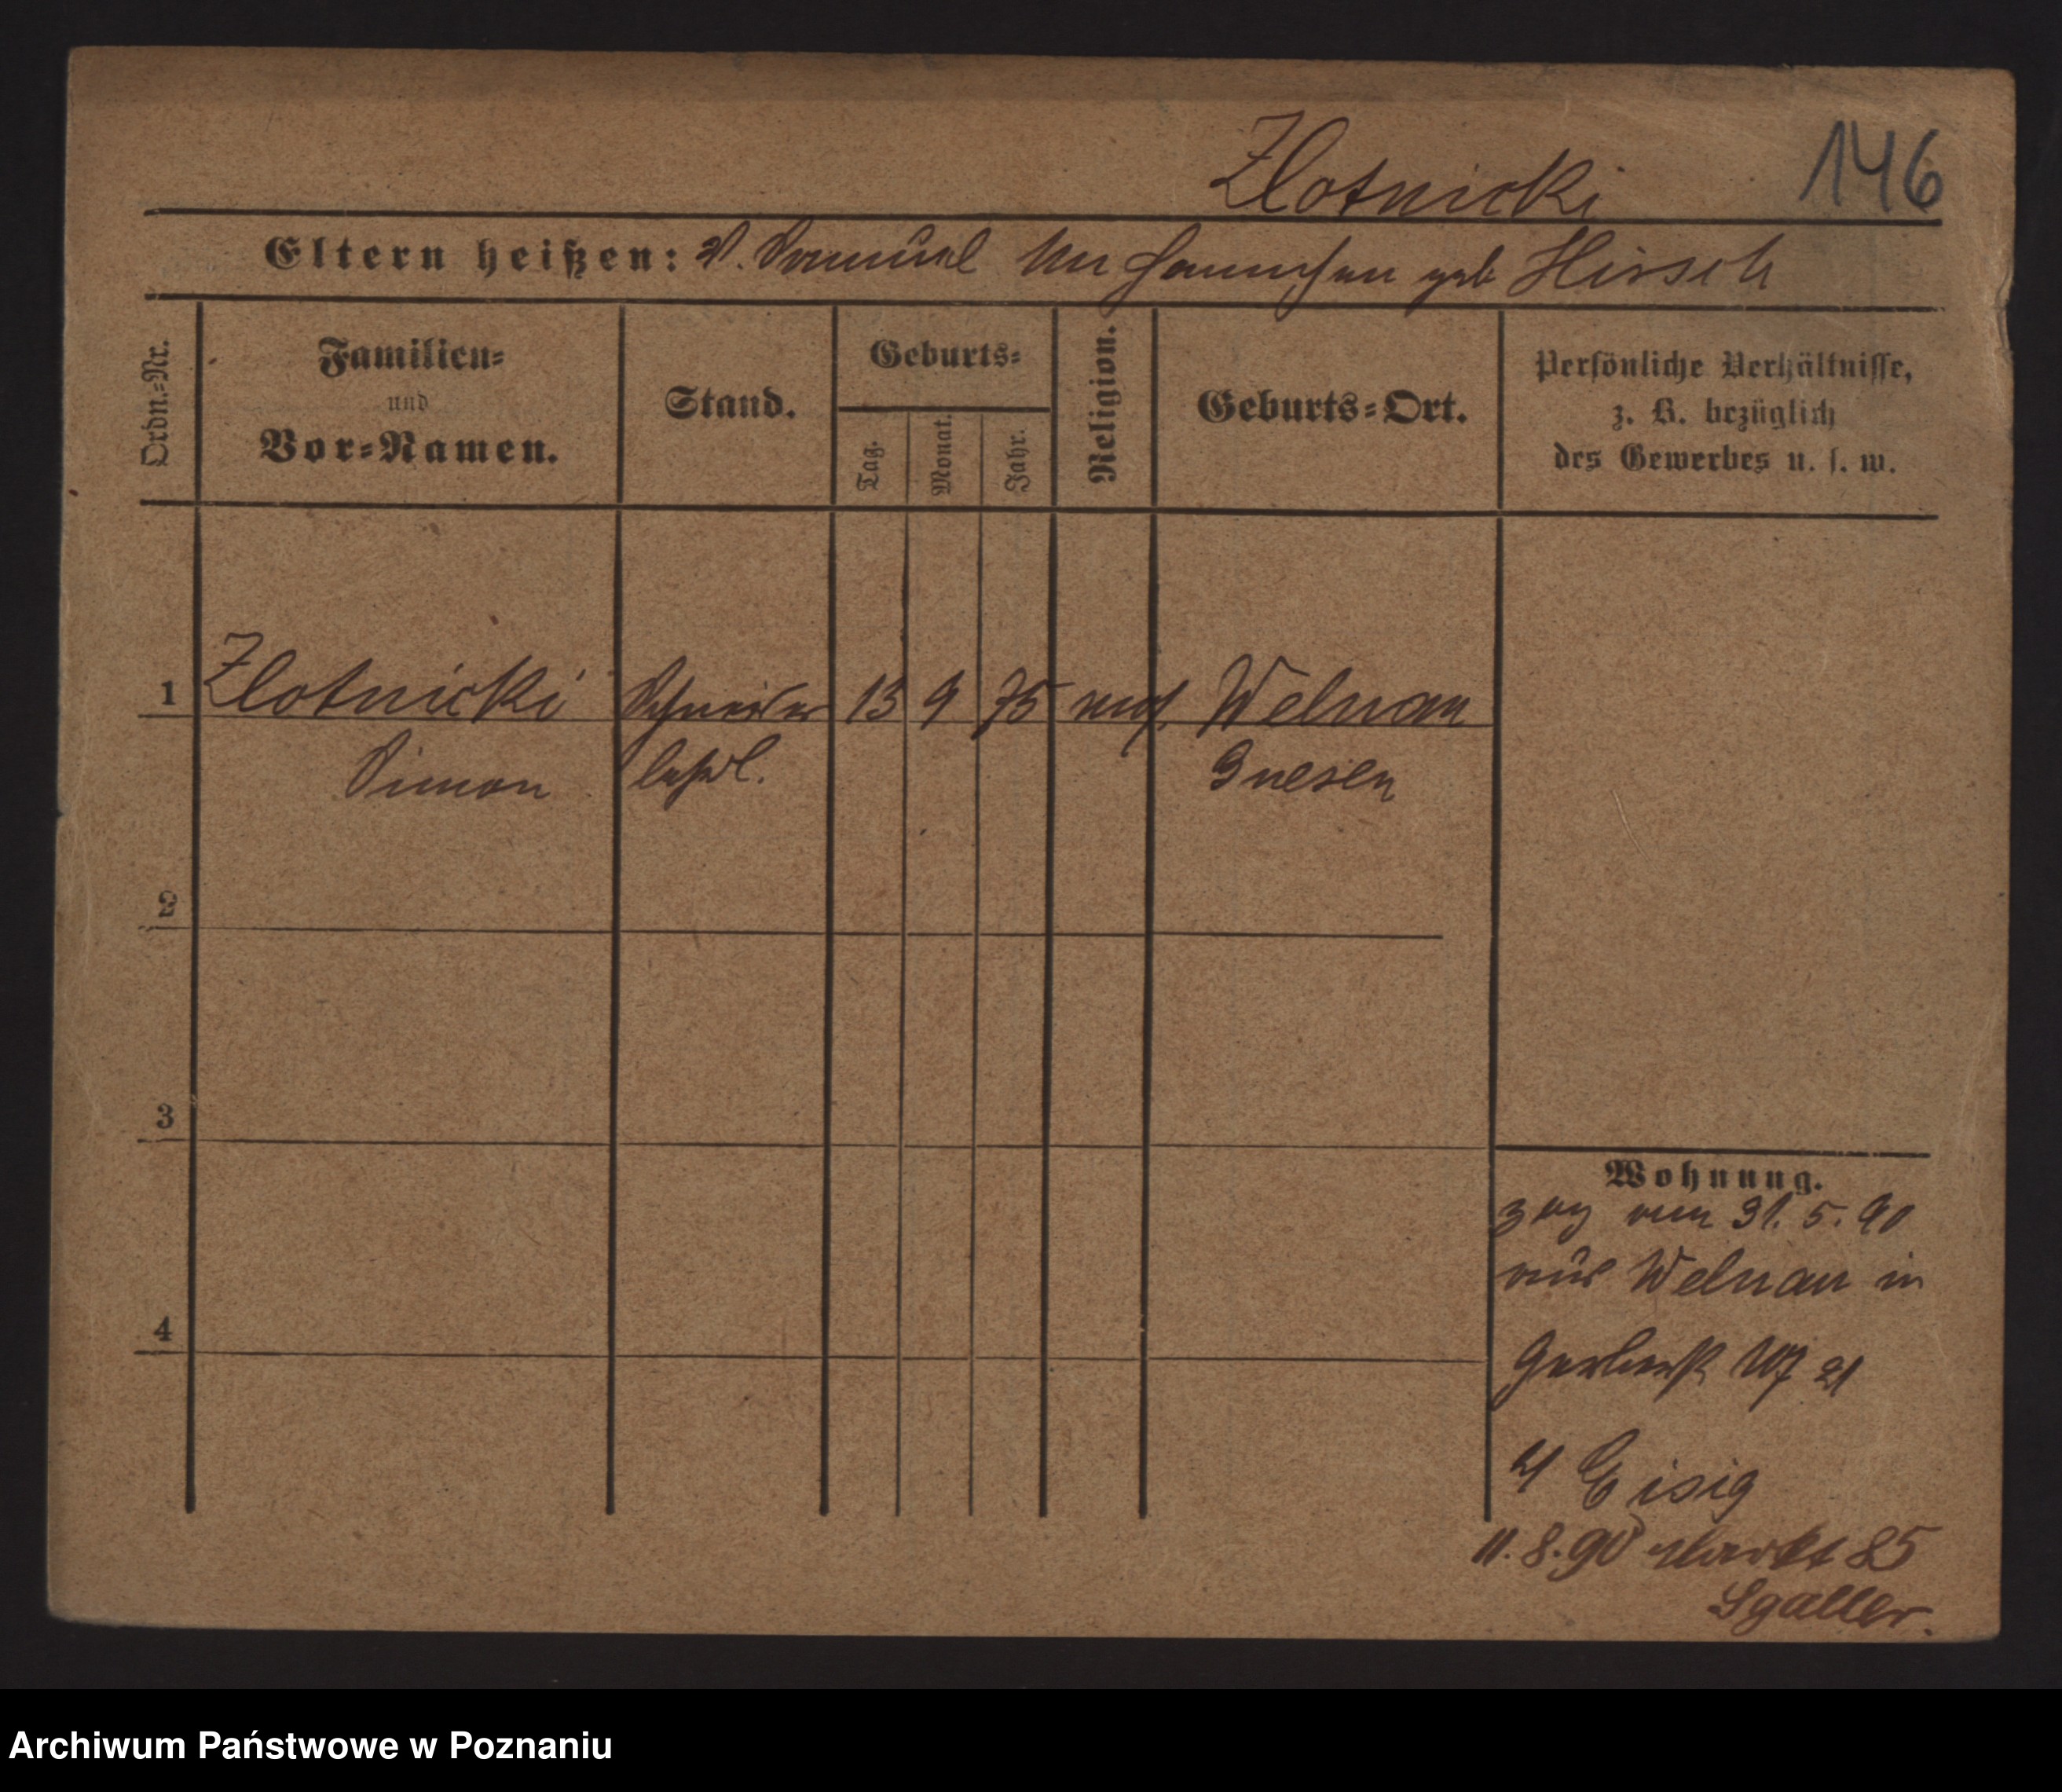 Zlotnicki 146
Eltern heißen: V. Samuel Mu Hannchen geb Hirsch
Ordn.-Nr.
Familien-
und
Vor-Namen.
Stand.
Geburts-
Tag.
Monat.
Jahr.
Religion.
Geburts-Ort.
Persönliche Verhältnisse,
z. B. bezüglich
des Gewerbes u. s. w.
1 Zlotnicki Schneider 13 9 75 mos. Welnau
Simon lehrl. Gnesen
2
3
4
Wohnung.
zog am 31. 5. 90
aus Welnau in
Gerberst 21
Eisig
11. 8. 90 Markt 85
Sgaller.
Archiwum Państwowe w Poznaniu